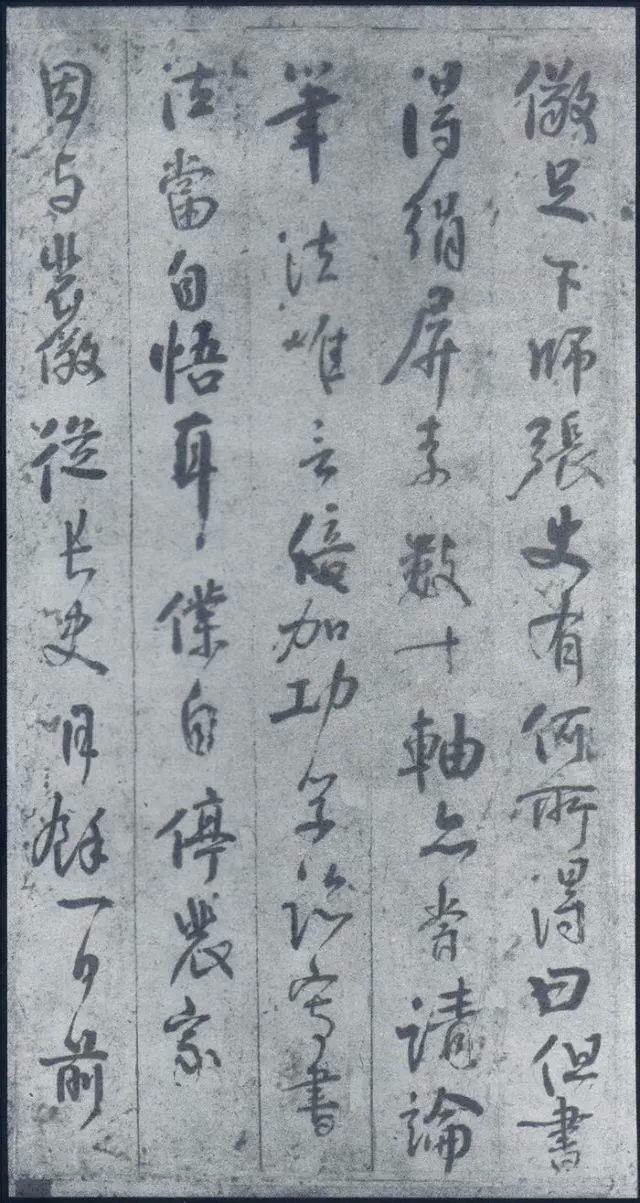 儆足下师張史有何所得曰但書
得绢屏素数十軸亦甞請論
筆法唯言倍加功学臨寫書
法當自悟耳僕自停裴家
因与裴儆從长史月餘一日前